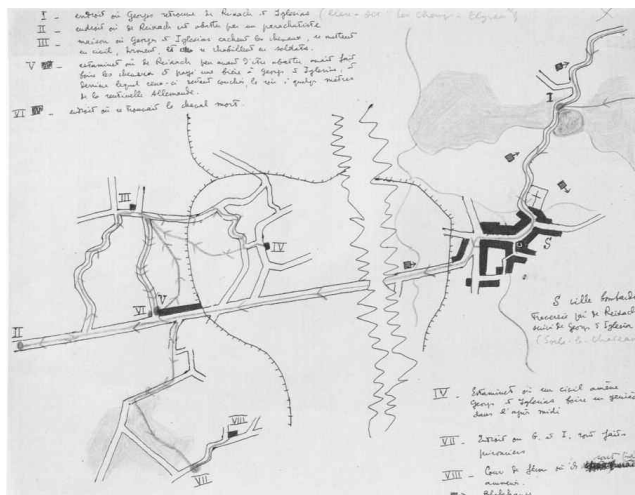 I — endroit où Georges retrouve de Reixach et Iglésias
II — endroit où de Reixach est abattu par un parachutiste
III — maison où Georges et Iglésias cachent les chevaux, se mettent
en civil, dorment, et se rhabillent en soldats.
V — estaminet où de Reixach peu avant d'être abattu avait fait
boire les chevaux et payé une bière à Georges et Iglésias, et
derrière lequel ceux-ci restent couchés le soir à quelques mètres
de la sentinelle Allemande.
VI — endroit où se trouvait le cheval mort.
I
III
IV
S
V
VI
II
S ville bombardée
traversée par de Reixach
suivi de Georges et Iglésias
VIII
VII
IV - Estaminet où un civil amène
Georges et Iglésias boire un genièvre
dans l'après midi
VII - Endroit où G. et I. sont faits
prisonniers
VIII - Cour de ferme où ils sont